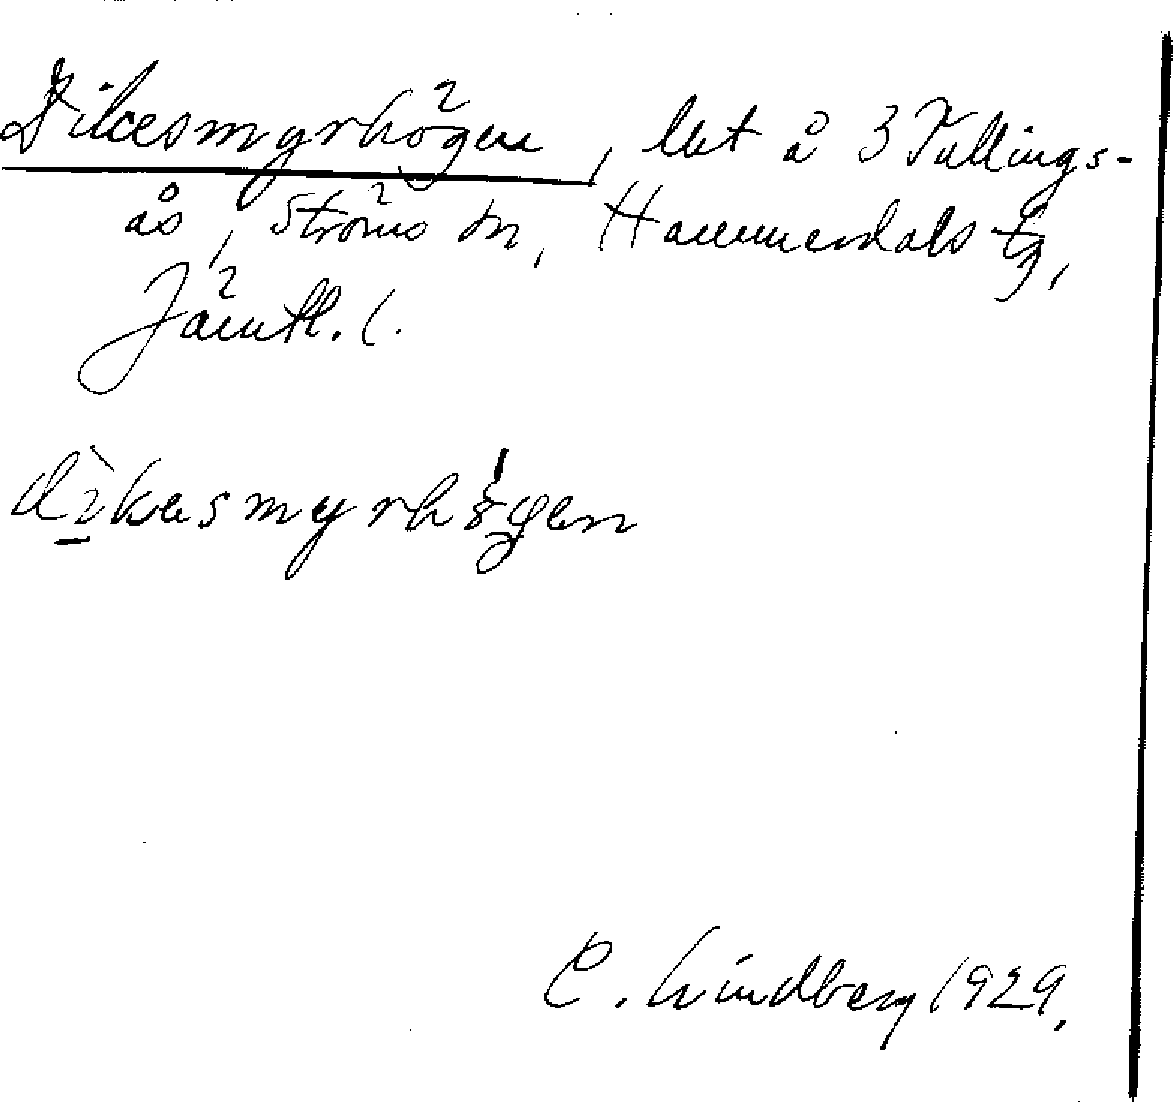 Dikesmyrhögen, lht å 3 Tullings-
ås, Ströms sn, Hammerdals tg,
Jämtl. l.
dìkesmyrhögen
C. Lindberg 1929.